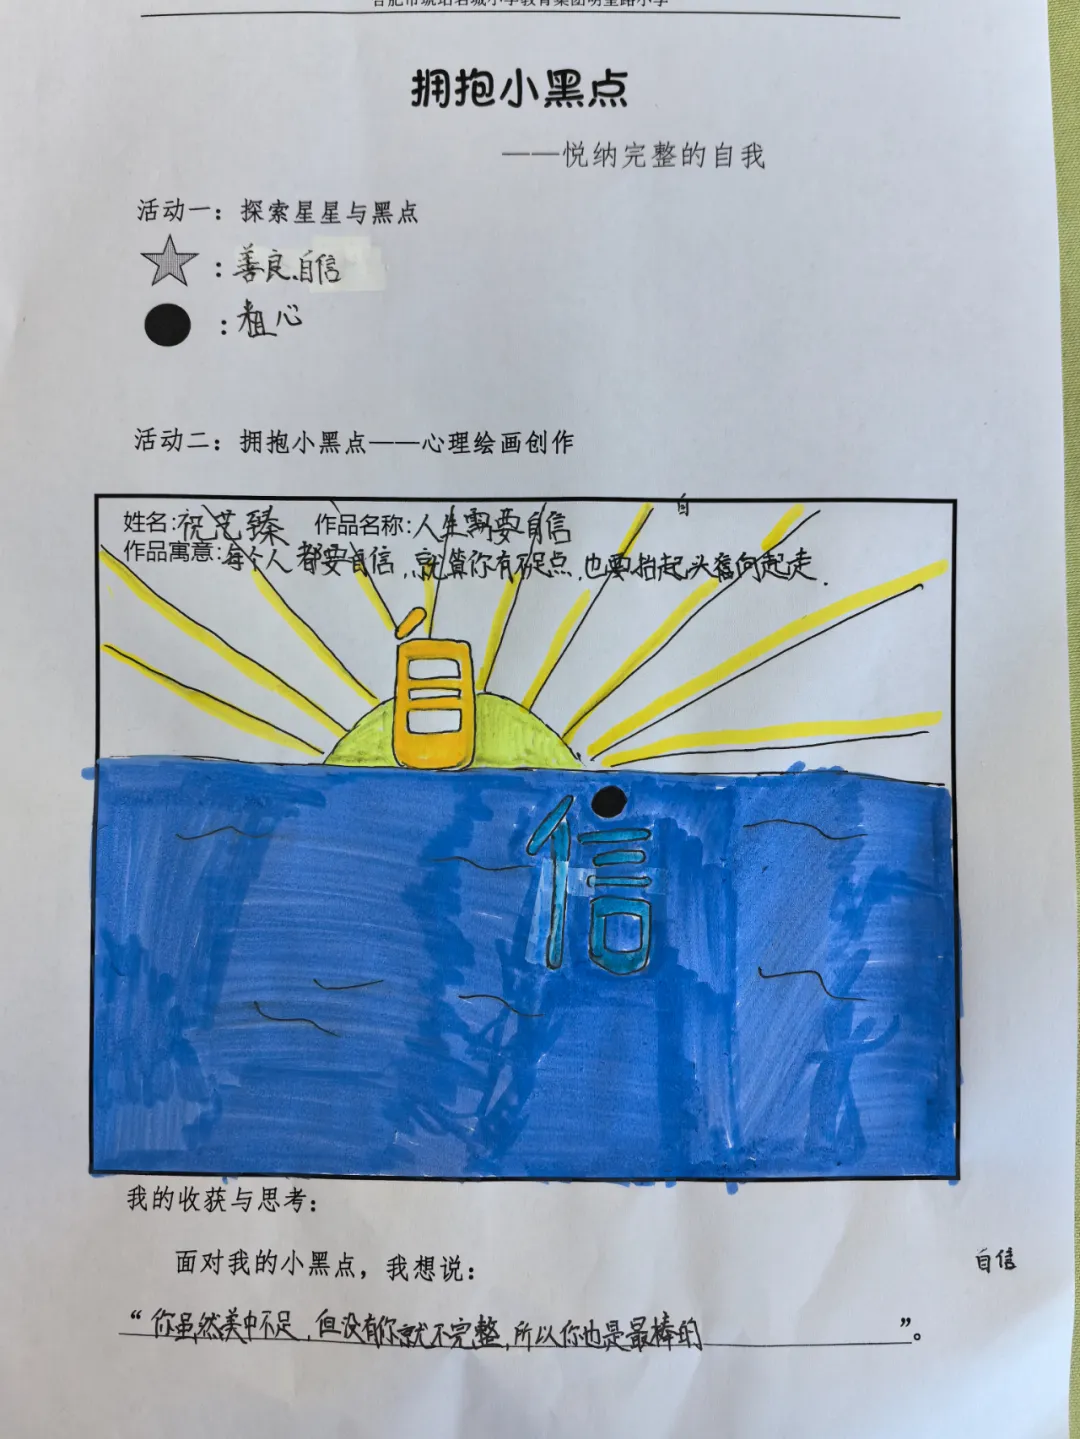 拥抱小黑点
——悦纳完整的自我
活动一：探索星星与黑点
：善良、自信
：粗心
活动二：拥抱小黑点——心理绘画创作
自
姓名：祝艺臻 作品名称：人生需要自信
作品寓意：每个人都要自信，就算你有不足点，也要抬起头奮向起走.
自
信
我的收获与思考：
面对我的小黑点，我想说：
自信
“你虽然美中不足，但没有你就不完整，所以你也是最棒的”。